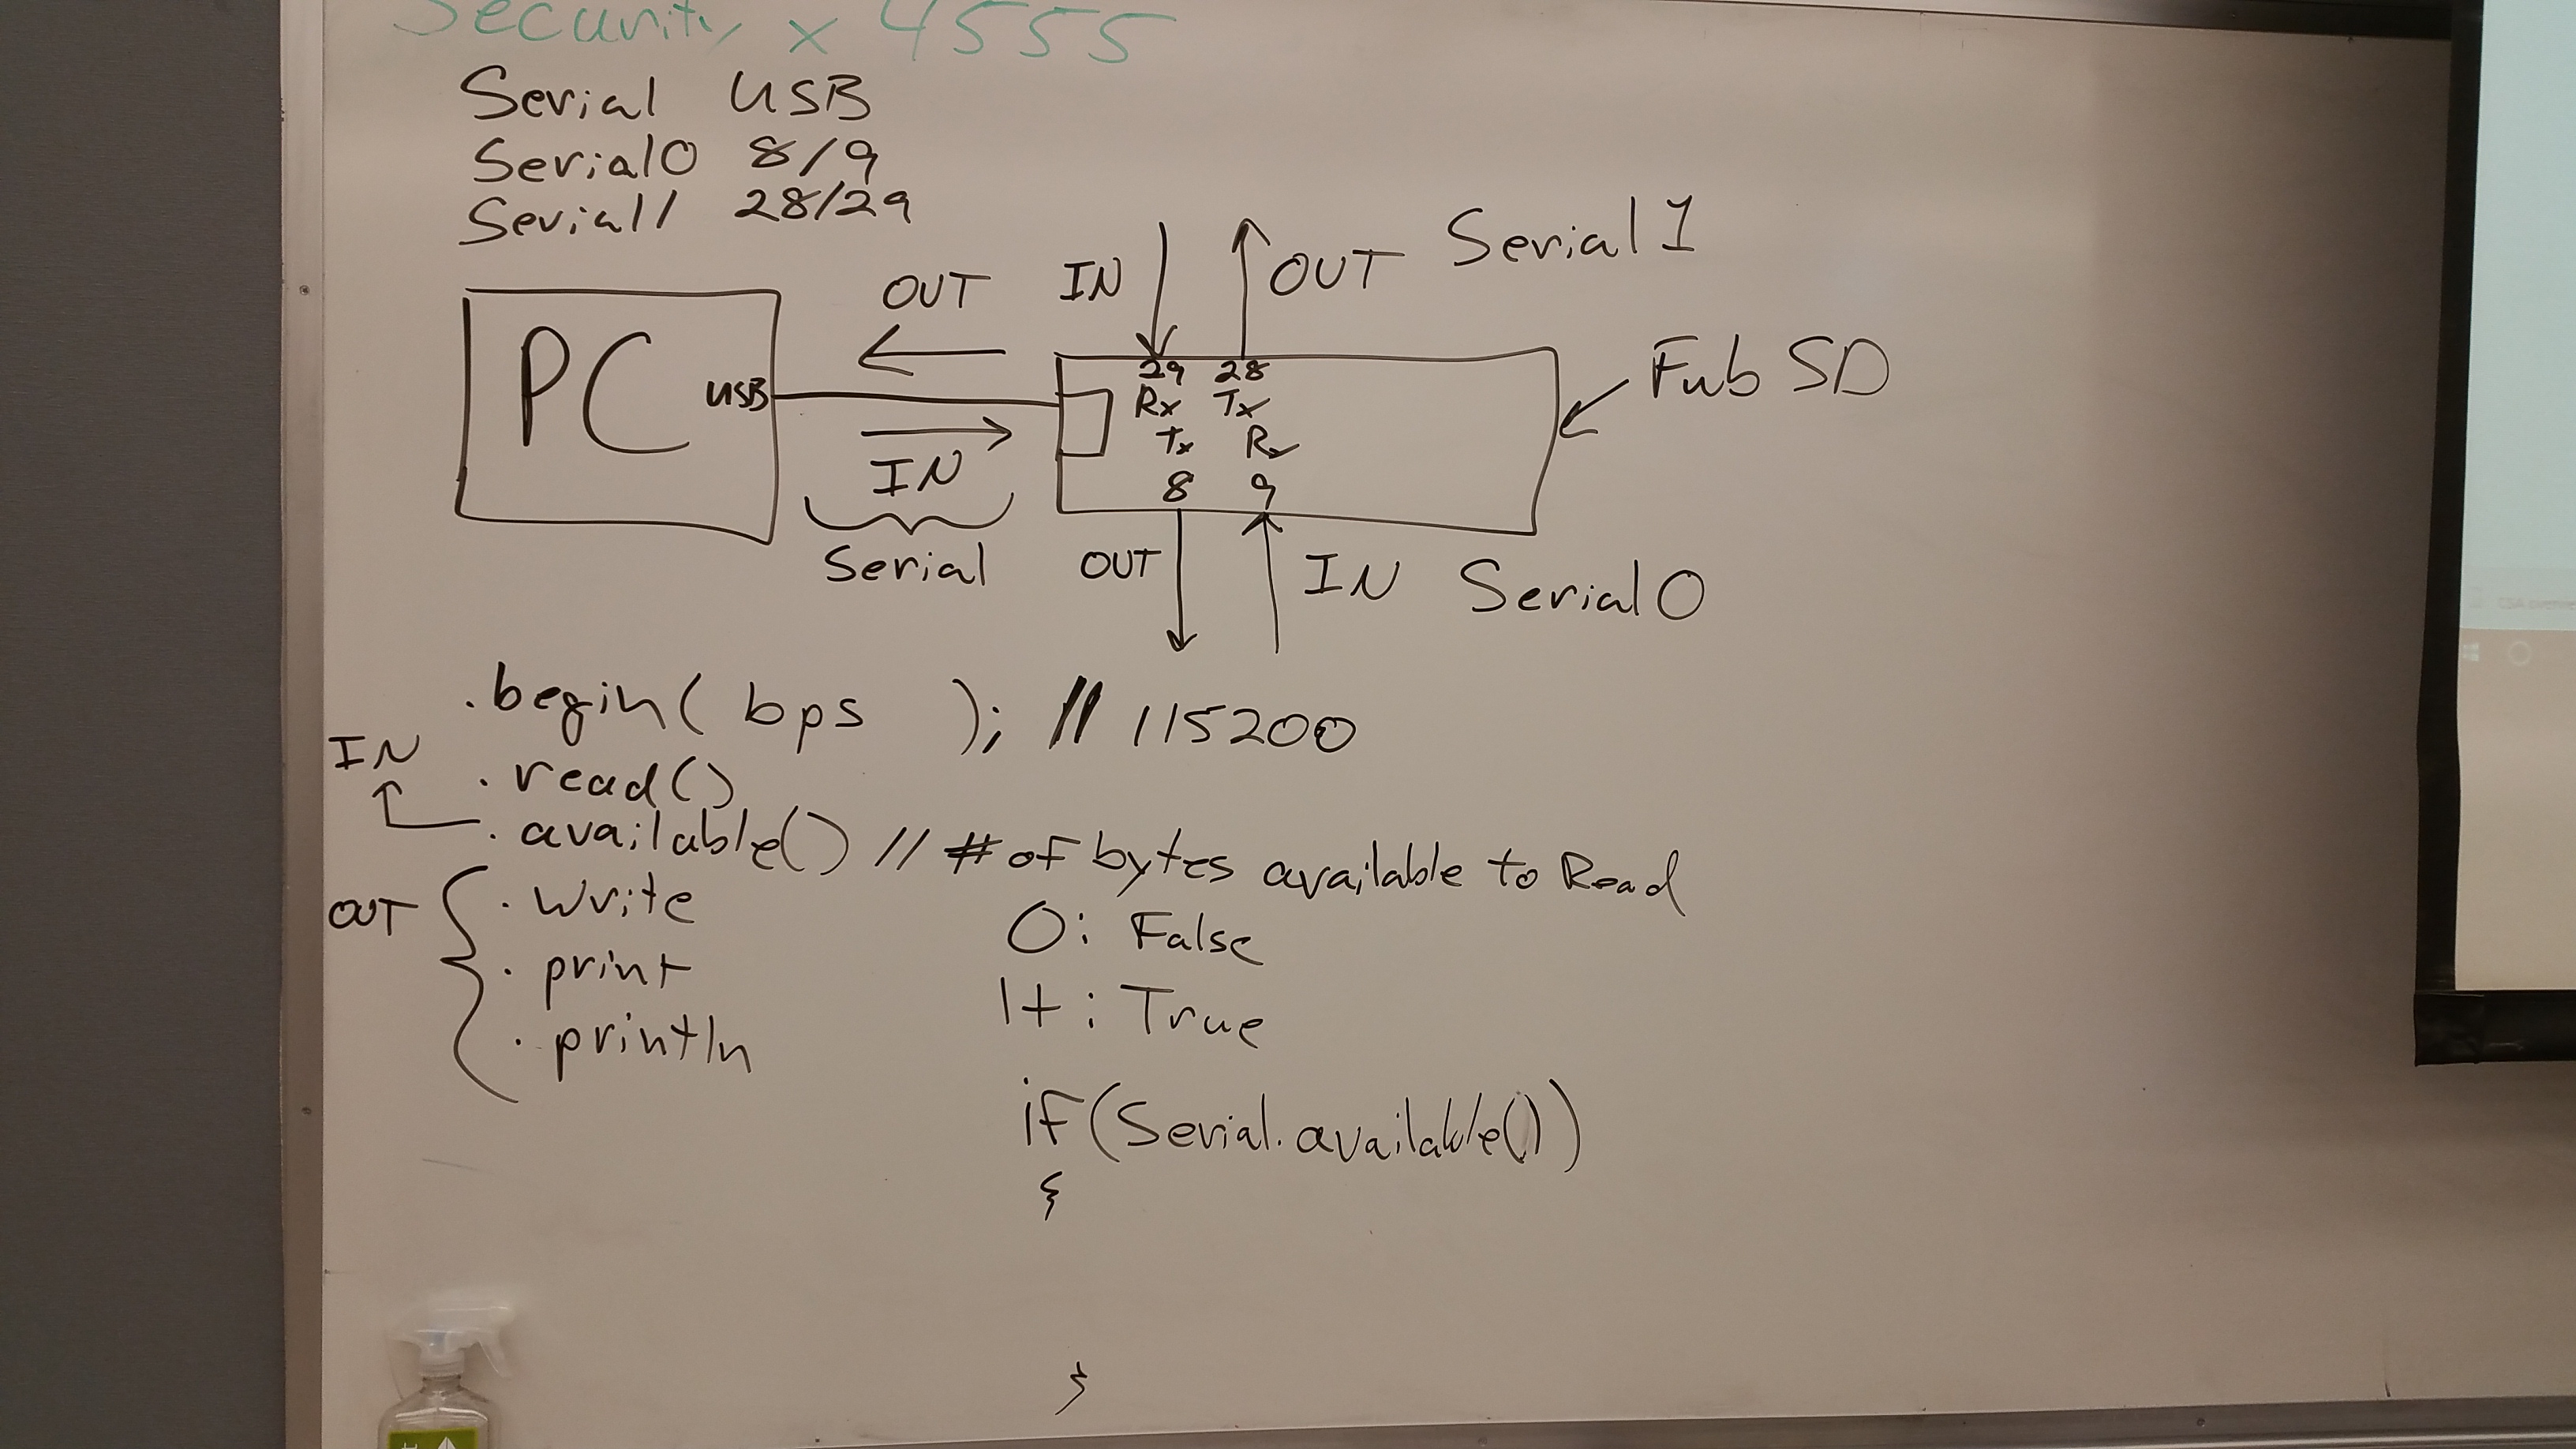 Security x 4555
Serial USB
Serial0 8/9
Serial1 28/29
IN OUT Serial 1
OUT
PC USB
29 28
Rx Tx
Tx Rx
8 9
Fub SD
IN
Serial
OUT IN Serial 0
.begin( bps ); // 115200
IN
.read()
.available() // # of bytes available to Read
OUT { .write
.print
.println
0: False
1+: True
if(Serial.available())
{
}